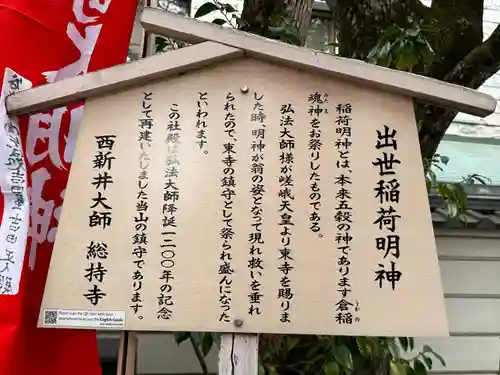 出世稲荷明神
稲荷明神とは、本来五穀の神であります倉稲
うかの
魂神をお祭りしたものである。
みたま
弘法大師様が嵯峨天皇より東寺を賜りま
した時、明神が翁の姿となって現れ救いを垂れ
られたので、東寺の鎮守として祭られ盛んになった
といわれます。
この社殿は弘法大師降誕一二〇〇年の記念
として再建いたしました当山の鎮守であります。
西新井大師 総持寺
English Guide